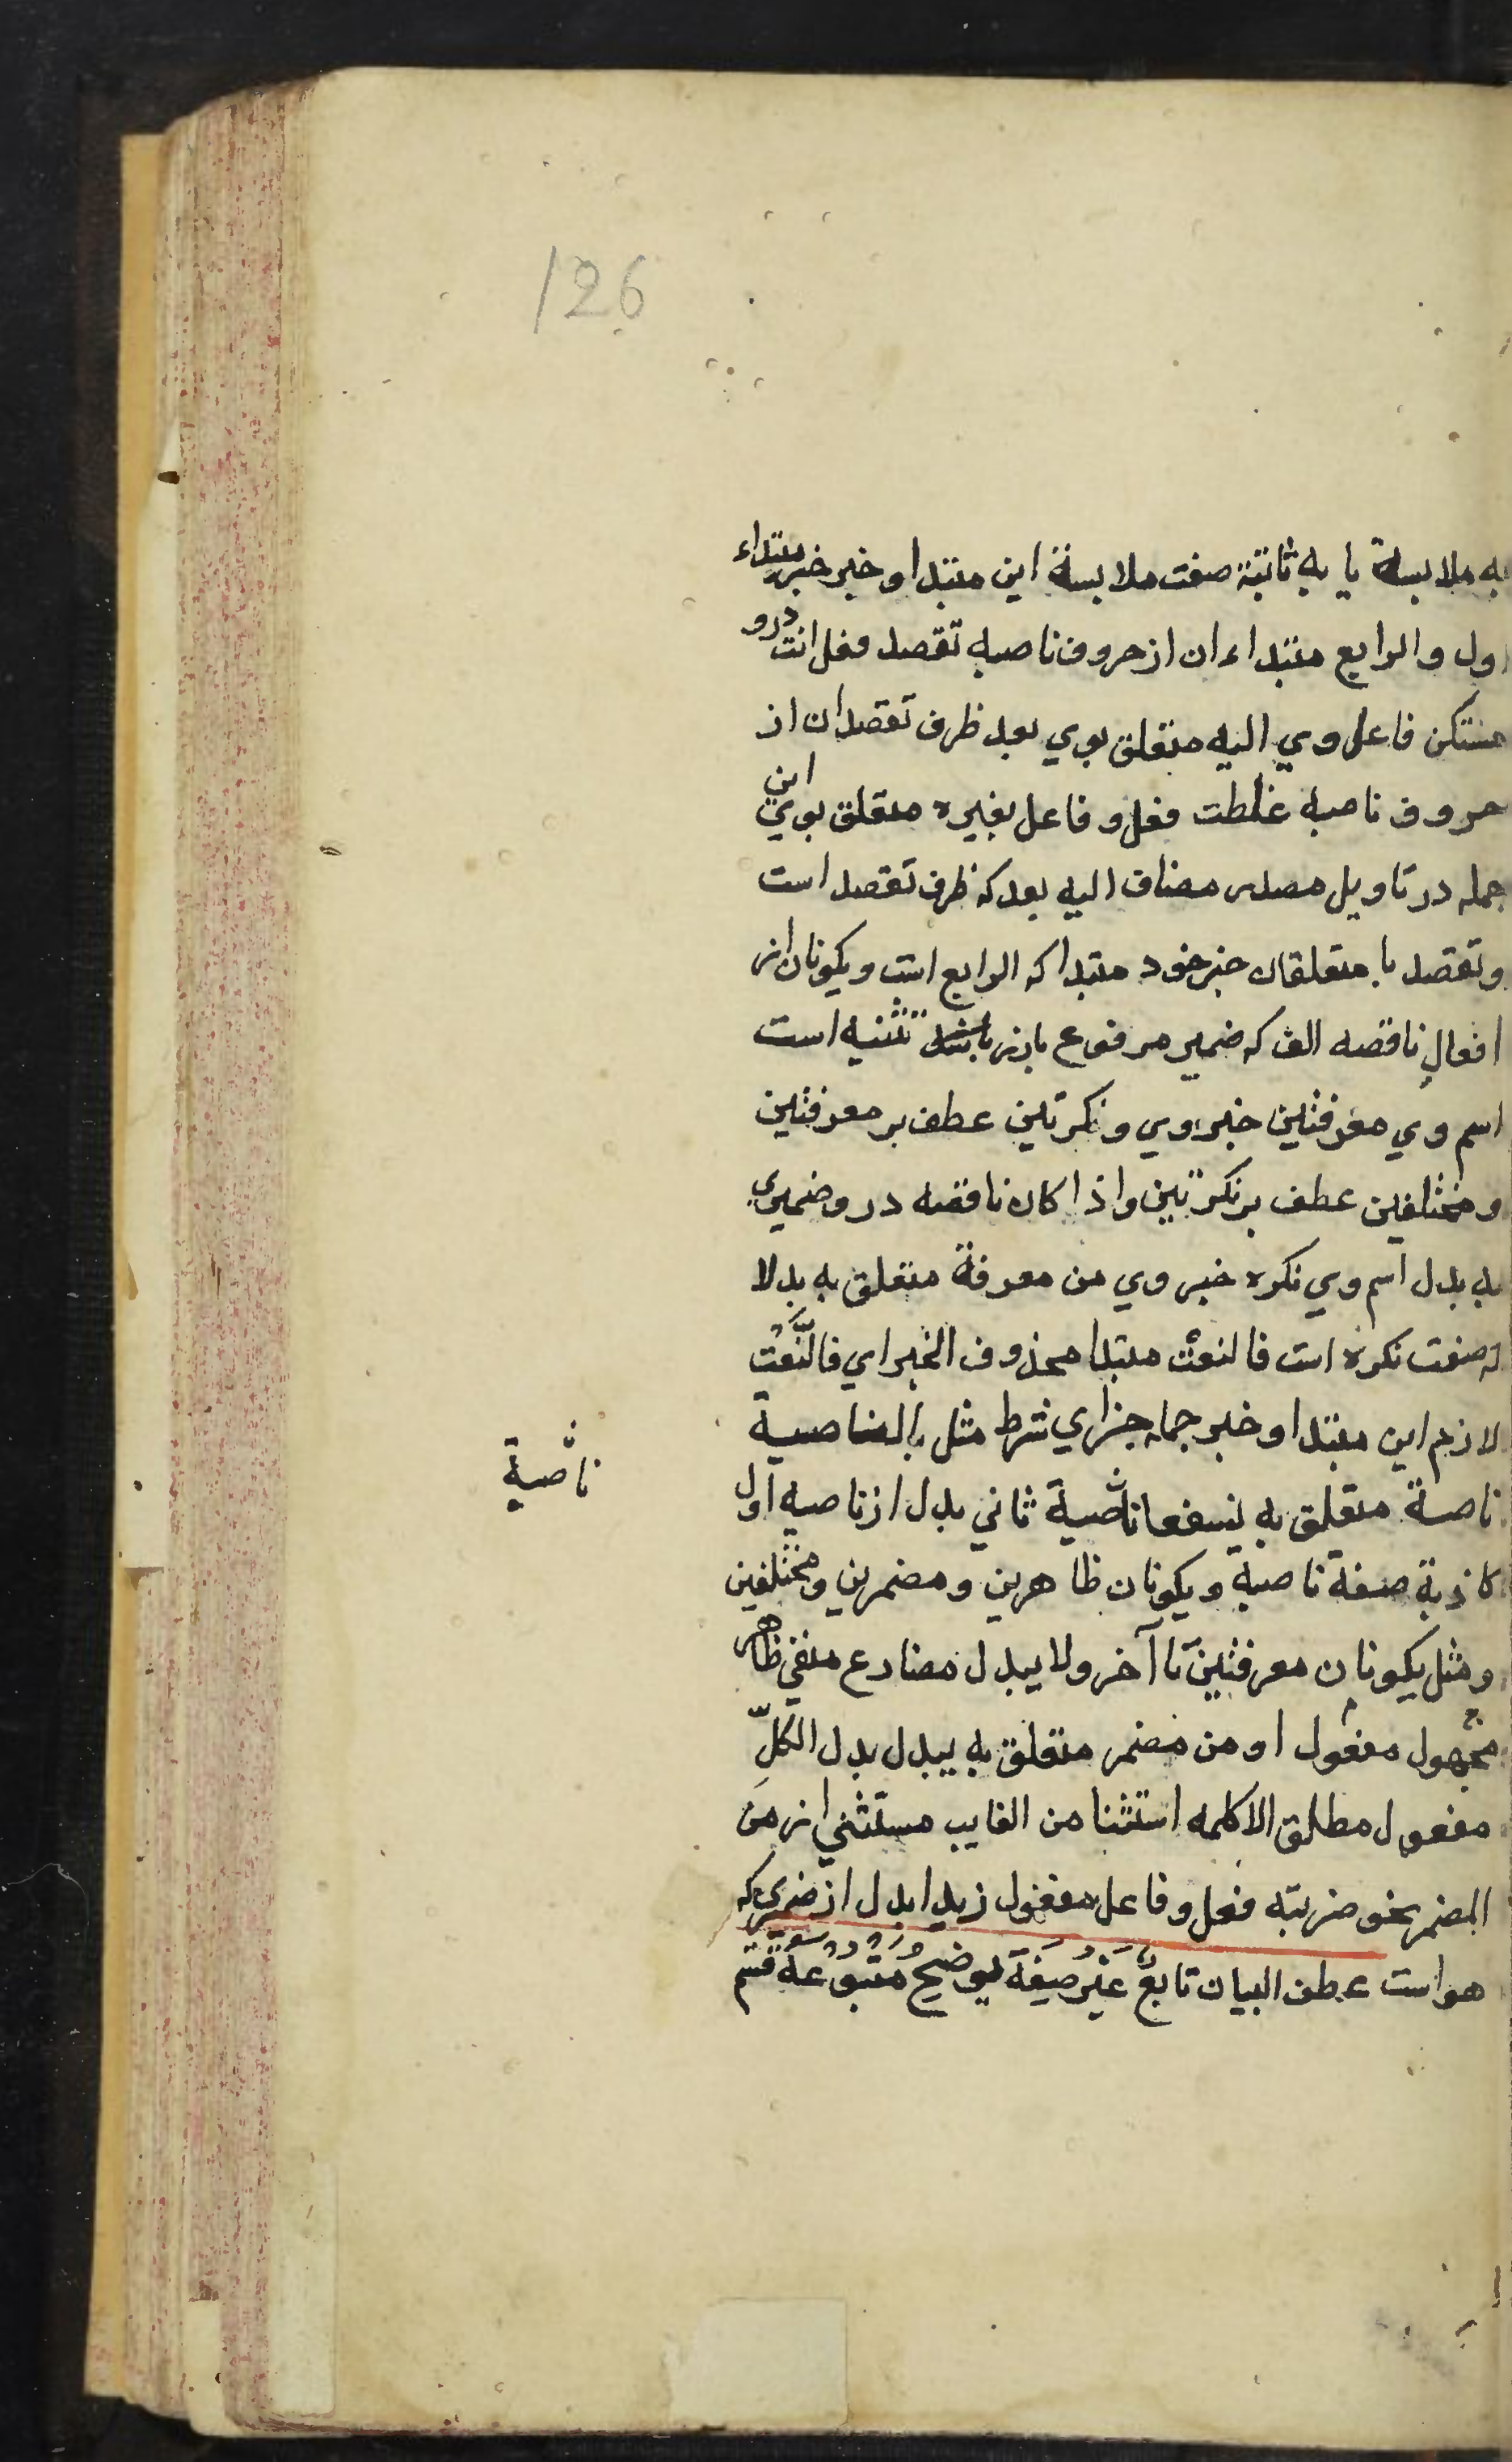 126
به ملابسة یا به ثابتة صفت ملابسة این مبتدا و خبر خبر مبتداء
اول والرابع مبتداء ان از حروف ناصبه تقصد فعل انت درو
مستکن فاعل وي الیه متعلق بوي بعد ظرف تقصد ان از
حروف ناصبه غلطت فعل و فاعل بغیره متعلق بوي این
جمله در تاویل مصدر مضاف الیه بعد که ظرف تقصد است
و تقصد با متعلقان خبر خود مبتدا که الرابع است ویکونان از
افعال ناقصه الف که ضمیر مرفوع بارز تثنیه است
اسم وي معرفتین خبر وي و نکرتین عطف بر معرفتین
و مختلفین عطف بر نکرتین واذا کان ناقصه درو ضمیری
به بدل اسم وي نکره خبر وي من معرفة متعلق به بدلا
که صفت نکره است فالنعت مبتدا محذوف الخبر اي فالنَّعْتُ
لازم این مبتدا و خبر جمله جزاي شرط مثل بالناصیة
ناصیة متعلق به لنسفعا ناصیة ثاني بدل از ناصیه اول
کاذبة صفة ناصیة ویکونان ظاهرین و مضمرین و مختلفین
و مثل یکونان معرفتین تا آخر ولا یبدل مضارع منفي ظاهر
مجهول مفعول او من مضمر متعلق به یبدل بدل الکلّ
مفعول مطلق الا کلمه استثنا من الغایب مستثني از من
المضمر نحو ضربته فعل و فاعل مفعول زیدا بدل از ضمیری که
هو است عطف البیان تابعٌ غَیْرُ صِفَةٍ یوضِحُ مَتْبُوعَهُ قسم
ناصیة